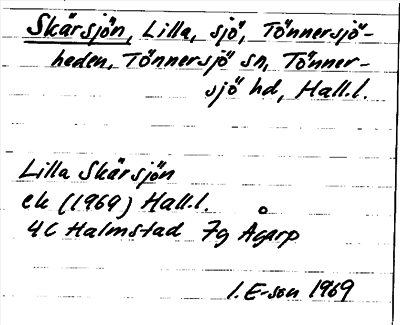 Skärsjön, Lilla, sjö, Tönnersjö-
heden, Tönnersjö sn, Tönner-
sjö hd, Hall.l.
Lilla Skärsjön
ek (1969) Hall.l.
4C Halmstad 7g Ågarp
I. E-son 1969